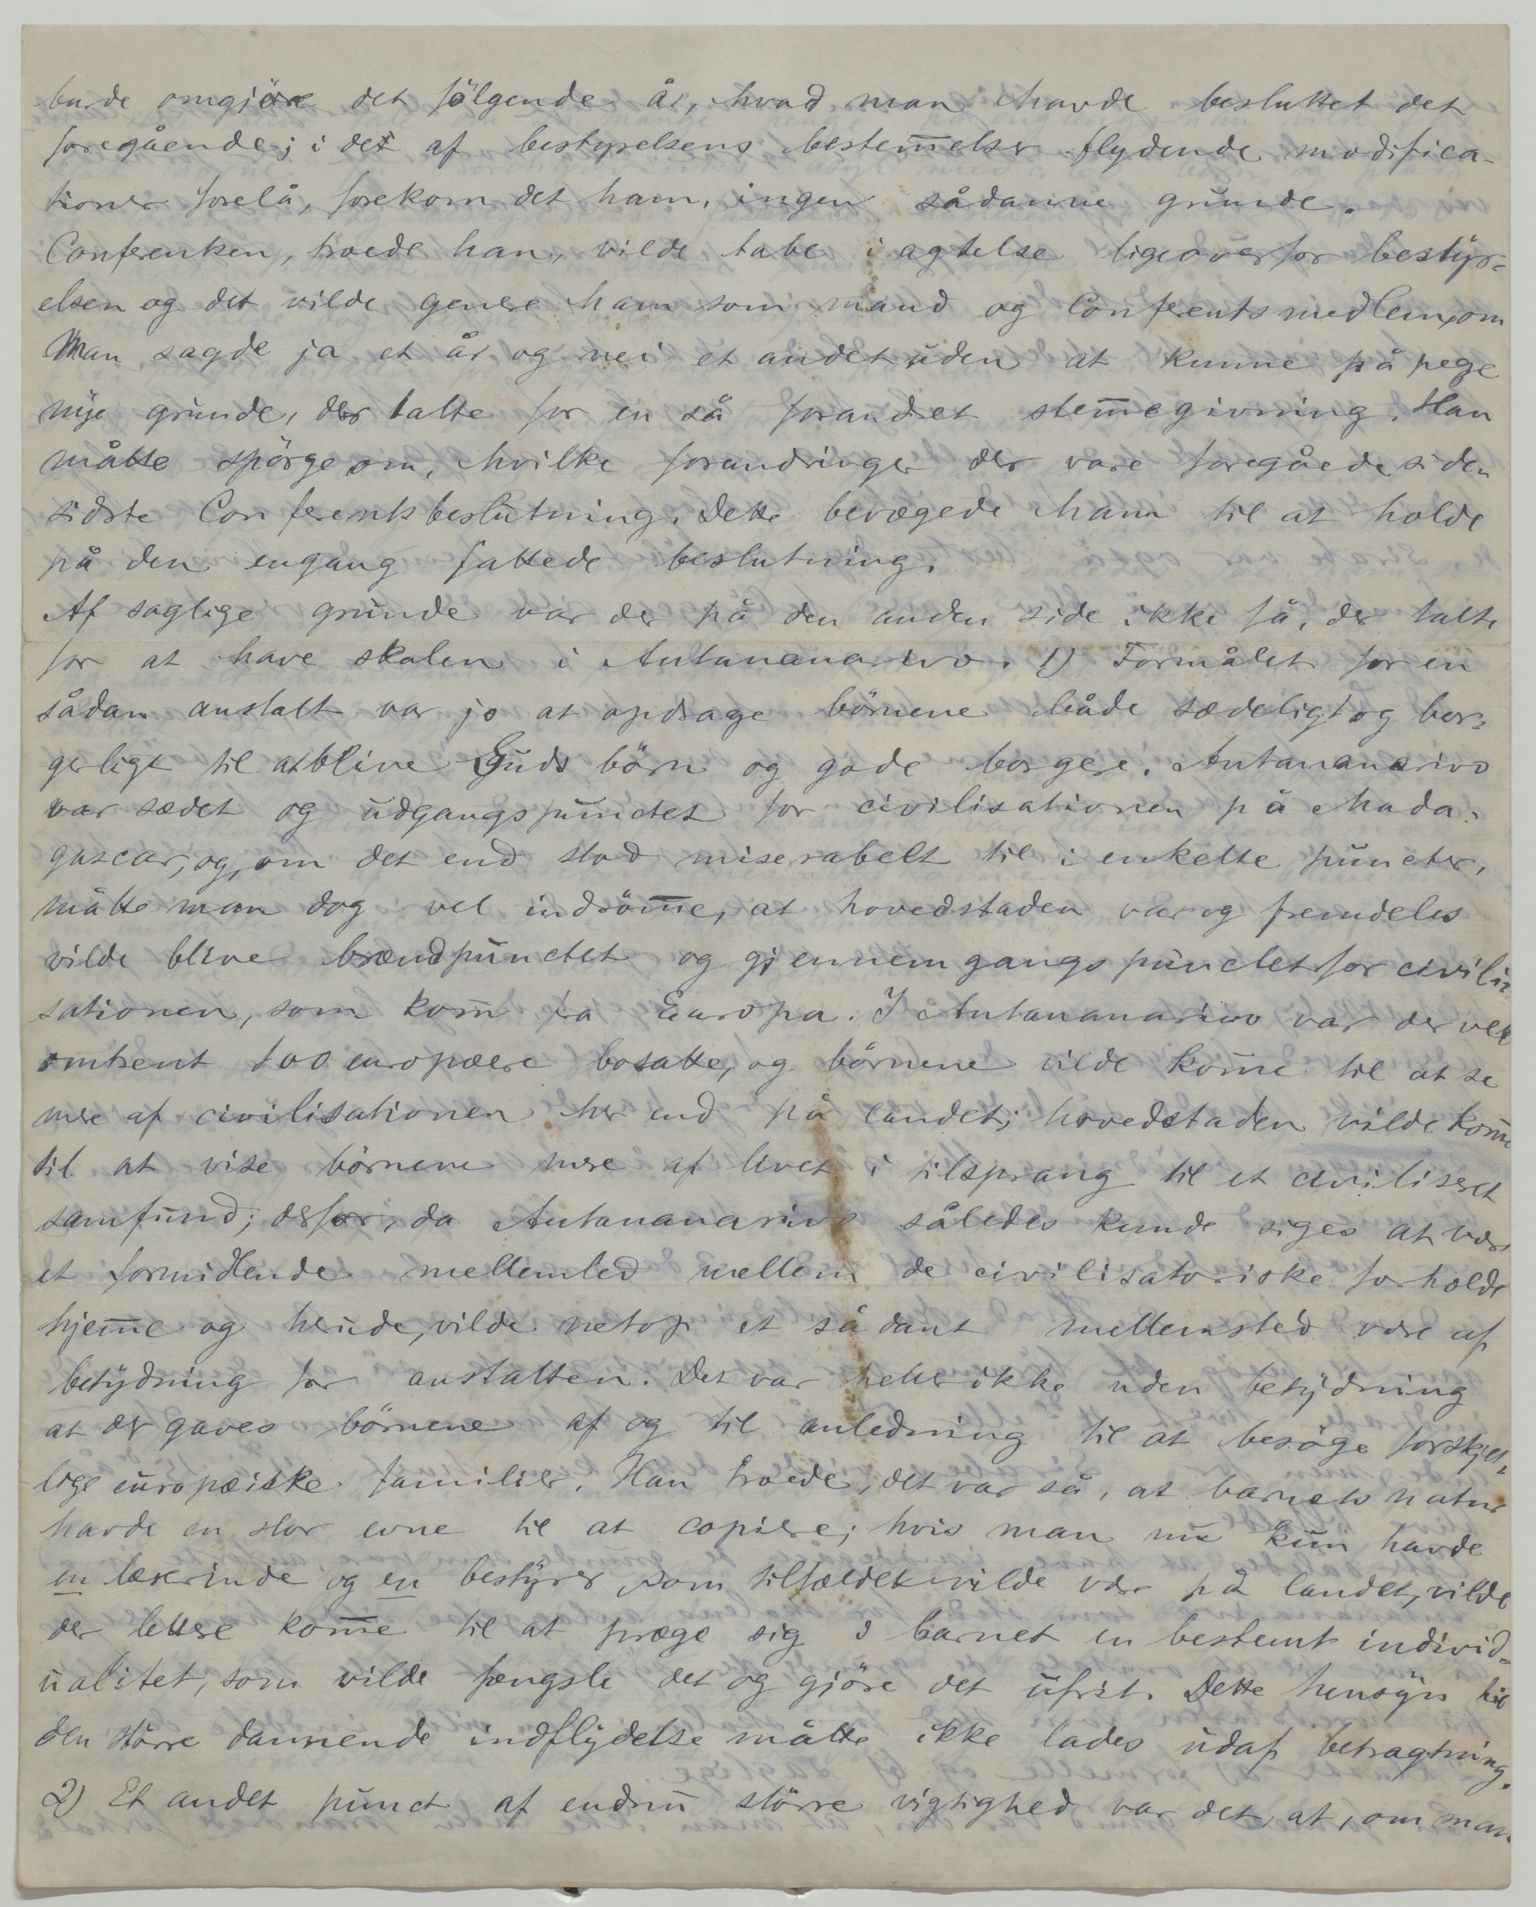 burde omgjöre det fölgende år, hvad man havde besluttet det
foregående; i det af bestyrelsens bestem̅elser flydende modifica-
tioner forelå, forekom det ham, ingen sådanne grunde.
Conferentsen, troede han, vilde tabe i agtelse ligeoverfor bestyr-
elsen og det vilde genere ham som mand og Conferentsmedlem, om
Man sagde ja et år og nei et andet uden at kunne påpege
nye grunde, der talte for en så forandret stem̅egivning. Han
måtte spörge om, hvilke forandringer der vare foregåede siden
sidste Conferentsbeslutning. Dette bevægede ham til at holde
på den engang fattede beslutning.
Af saglige grunde var der på den anden side ikke få, der talte
for at have skolen i Antananarivo. 1) Formålet for en
sådan anstalt var jo at opdrage börnene både sædeligt og bor-
gerligt til at blive Guds börn og gode borgere. Antananarivo
var sædet og udgangspunctet for civilisationen på Mada-
gascar, og, om det end stod miserabelt til i enkelte puncter,
måtte man dog vel indröm̅e, at hovedstaden var og fremdeles
vilde blive brændpunctet og gjennemgangspunctet for civili-
sationen, som kom̅ fra Europa. I Antananarivo var der vel
omtrent 100 europæere bosatte, og börnene vilde kom̅e til at se
mere af civilisationen her end på landet; hovedstaden vilde kom̅e
til at vise börnene mere af livet i tilsprang til et civiliseret
samfund; derfor, da Antananarivo således kunde siges at være
et formidlende mellemled mellem de civilisatoriske forholde
hjem̅e og herude, vilde netop et sådant mellemsted være af
betydning for anstalten. Det var heller ikke uden betydning
at der gaves börnene af og til anledning til at besöge forskjel-
lige europæiske familier. Han troede, det var så, at barnets natur
havde en stor evne til at copiere; hvis man nu kun havde
en lærerinde og en bestyrer som tilfældet vilde være på landet, vilde
der lettere kom̅e til at præge sig i barnet en bestemt individ-
ualitet, som vilde fængsle det og gjöre det ufrit. Dette hensyn til
den större dannende indflydelse måtte ikke lades udaf betragtning.
2) Et andet punct af endnu större vigtighed var det, at, om man